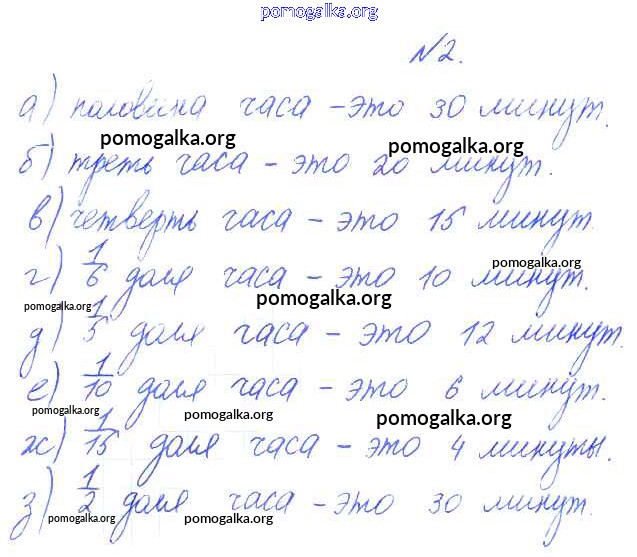 pomogalka.org
№2.
а) половина часа – это 30 минут.
pomogalka.org
pomogalka.org
б) треть часа – это 20 минут.
в) четверть часа – это 15 минут.
pomogalka.org
г) 1/6 доля часа – это 10 минут.
pomogalka.org
pomogalka.org
д) 1/5 доля часа – это 12 минут.
е) 1/10 доля часа – это 6 минут.
pomogalka.org
pomogalka.org
pomogalka.org
ж) 1/15 доля часа – это 4 минуты.
з) 1/2 доля часа – это 30 минут.
pomogalka.org
pomogalka.org